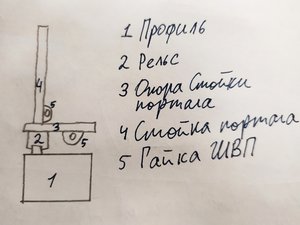 1 Профиль
2 Рельс
3 Опора Стойки
портала
4 Стойка портала
5 Гайка ШВП
4
5
3
2
5
1